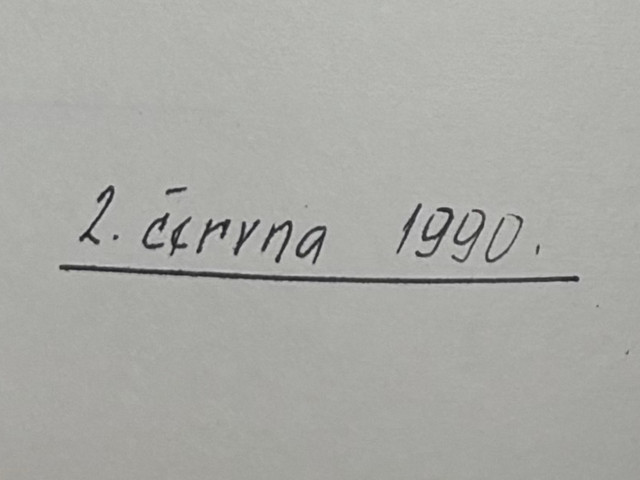 2. června 1990.